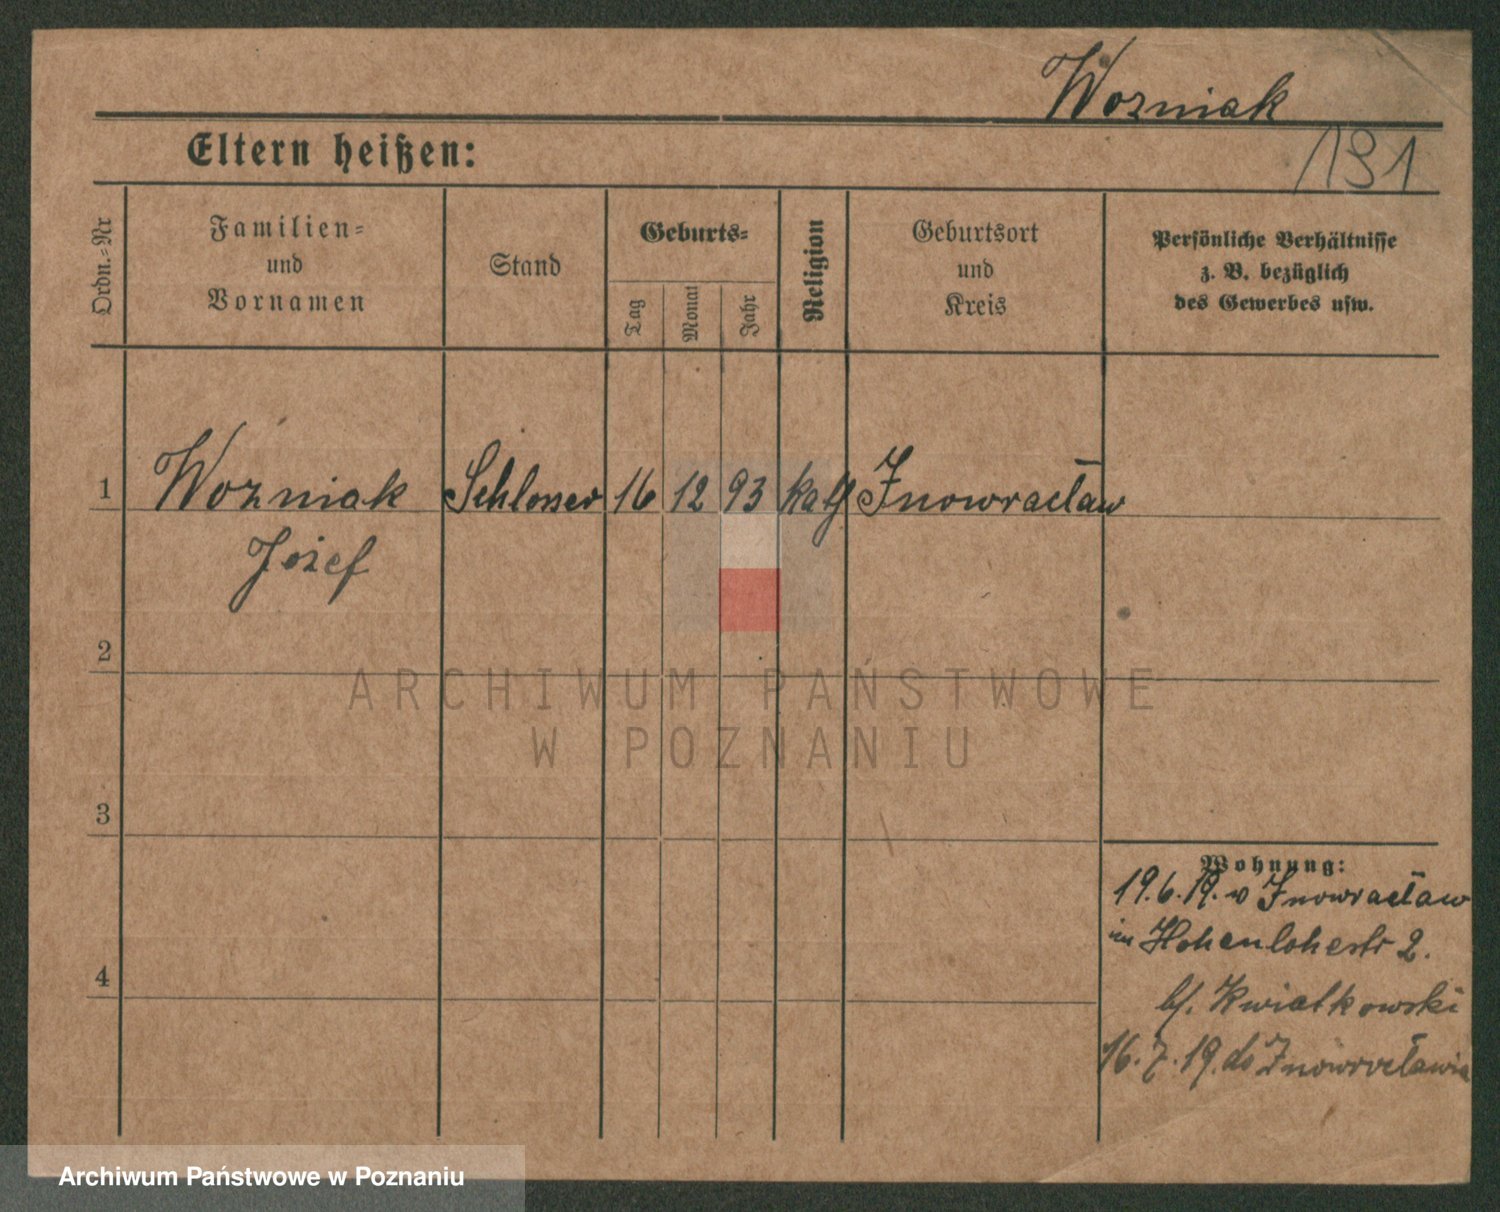 Wozniak
191
Eltern heißen:
Ordn.-Nr
Familien- und Vornamen
Stand
Geburts-
Tag
Monat
Jahr
Religion
Geburtsort und Kreis
Persönliche Verhältnisse z. B. bezüglich des Gewerbes usw.
1 Wozniak Schlosser 16 12 93 kath Inowracław
Józef
2
ARCHIWUM PAŃSTWOWE
W POZNANIU
3
Wohnung:
19.6.19. v Inowracław
im Hohenlohestr 2.
bf. Kwiatkowski
4
16.7.19. do Inowrocławia
Archiwum Państwowe w Poznaniu